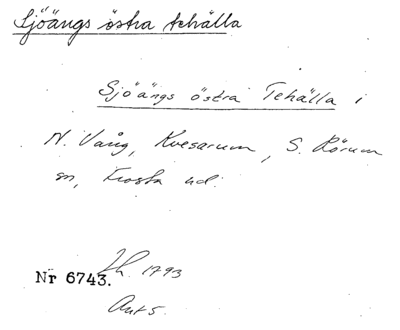 Sjöängs östra tehälla
Sjöängs östra Tehälla i
N. Vång, Kvesarum, S. Rörum
sn, Frosta hd.
Nr 6743. Lh. 1793
Ant 5.